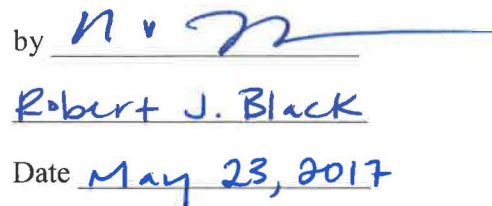 by
Robert J. Black
Date May 23, 2017